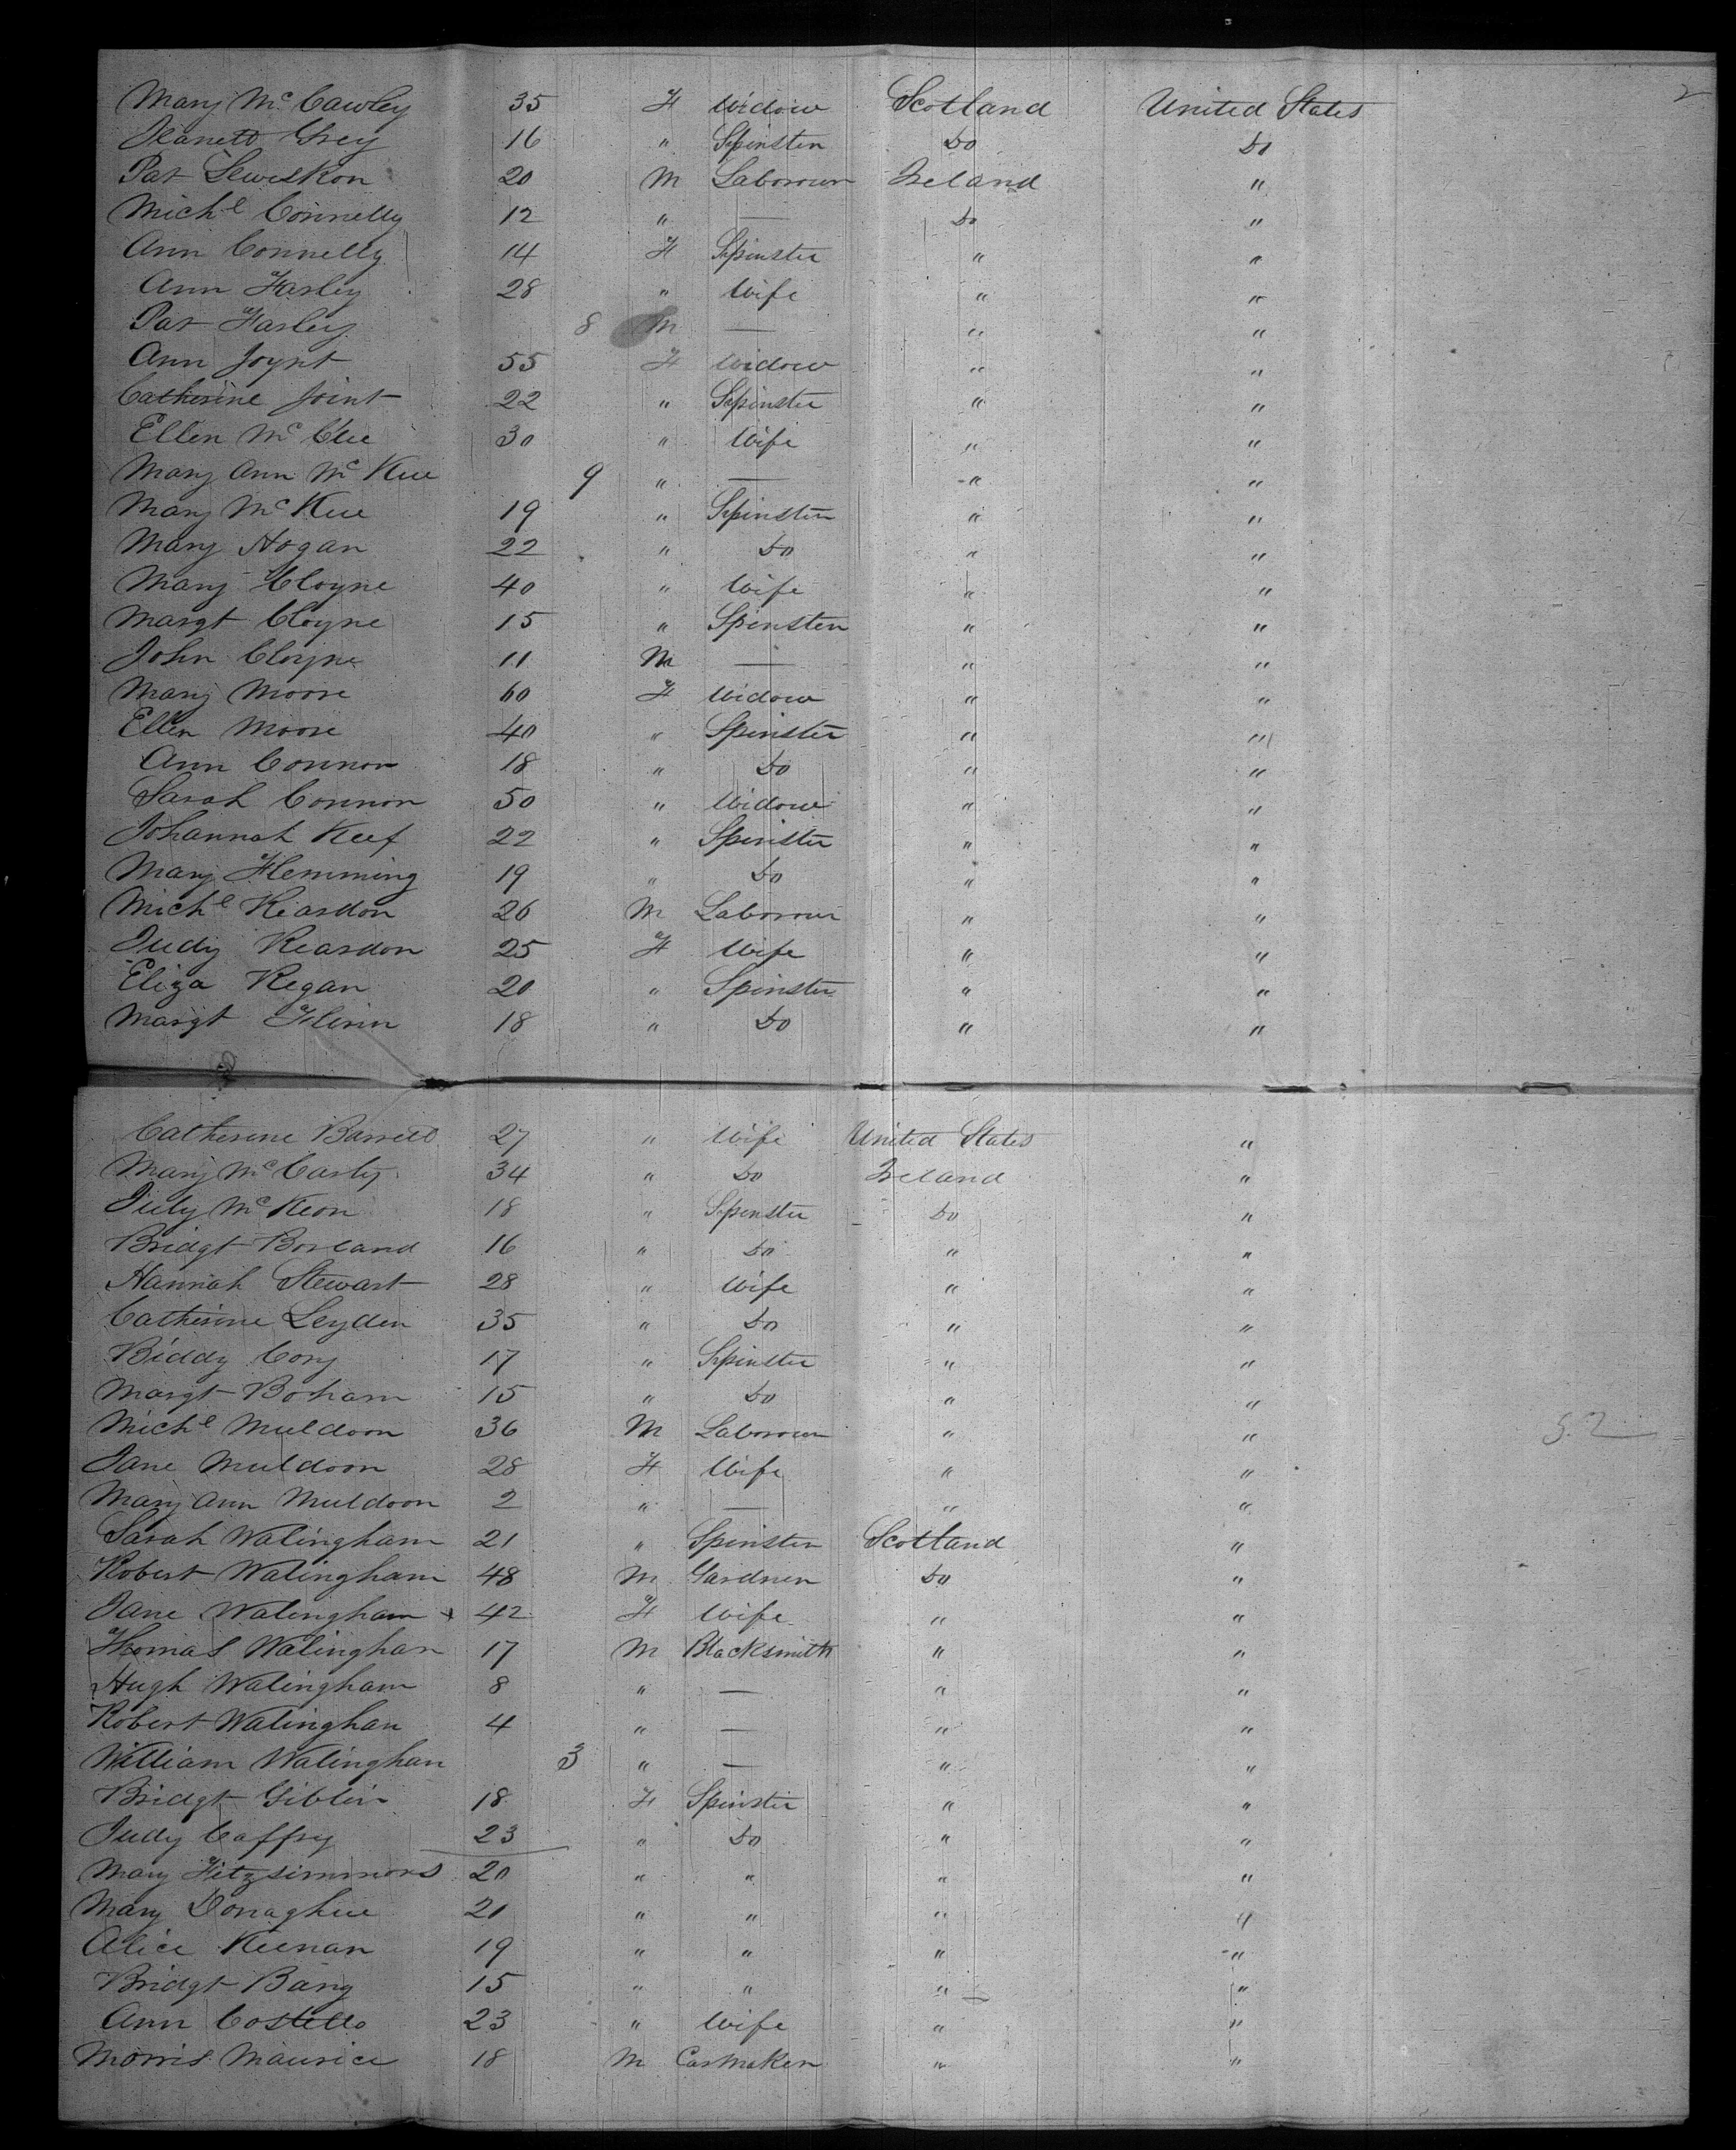 2
Mary McCawley 35 F Widow Scotland United States
Jeanett Grey 16 " Spinster Do Do
Pat 20 M Labourer Ireland "
Michl Connelly 12 " — Do "
Ann Connelly 14 F Spinster " "
Ann Farley 28 " Wife " "
Pat Farley 8 M — " "
Ann Joynt 55 F Widow " "
Catherine Joint 22 " Spinster " "
Ellen McClue 30 " Wife " "
Mary Ann McKue 9 " — " "
Mary McKue 19 " Spinster " "
Mary Hogan 22 " Do " "
Mary Cloyne 40 " Wife " "
Margt Cloyne 15 " Spinster " "
John Cloyne 11 M — " "
Mary Moore 60 F Widow " "
Ellen Moore 40 " Spinster " "
Ann Connor 18 " Do " "
Sarah Connor 50 " Widow " "
Johannah Keef 22 " Spinster " "
Mary Flemming 19 " Do " "
Michl Reardon 26 M Labourer " "
Judy Reardon 25 F Wife " "
Eliza Regan 20 " Spinster " "
Margt 18 " Do " "
Catherine Barrett 27 " Wife United States "
Mary McCarty 34 " Do Ireland "
July McKeon 18 " Spinster Do "
Bridgt Borland 16 " Do " "
Hannah Stewart 28 " Wife " "
Catherine Leyden 35 " Do " "
Biddy Cory 17 " Spinster " "
Margt Borham 15 " Do " "
Michl Muldoon 36 M Labourer " "
52
Jane Muldoon 28 F Wife " "
Mary Ann Muldoon 2 " — " "
Sarah Walingham 21 " Spinster Scotland "
Robert Walingham 48 M Gardner Do "
Jane Walingham 42 F Wife " "
Thomas Walinghan 17 M Blacksmith " "
Hugh Walingham 8 " — " "
Robert Walinghan 4 " — " "
William Walinghan 3 " — " "
Bridgt Giblin 18 F Spinster " "
Judy Caffry 23 " Do " "
Mary Fitzsimmons 20 " " " "
Mary Donaghue 21 " " " "
Alice Keenan 19 " " " "
Bridgt 15 " " " "
Ann Costello 23 " Wife " "
Morris Maurice 18 M Carmaker " "